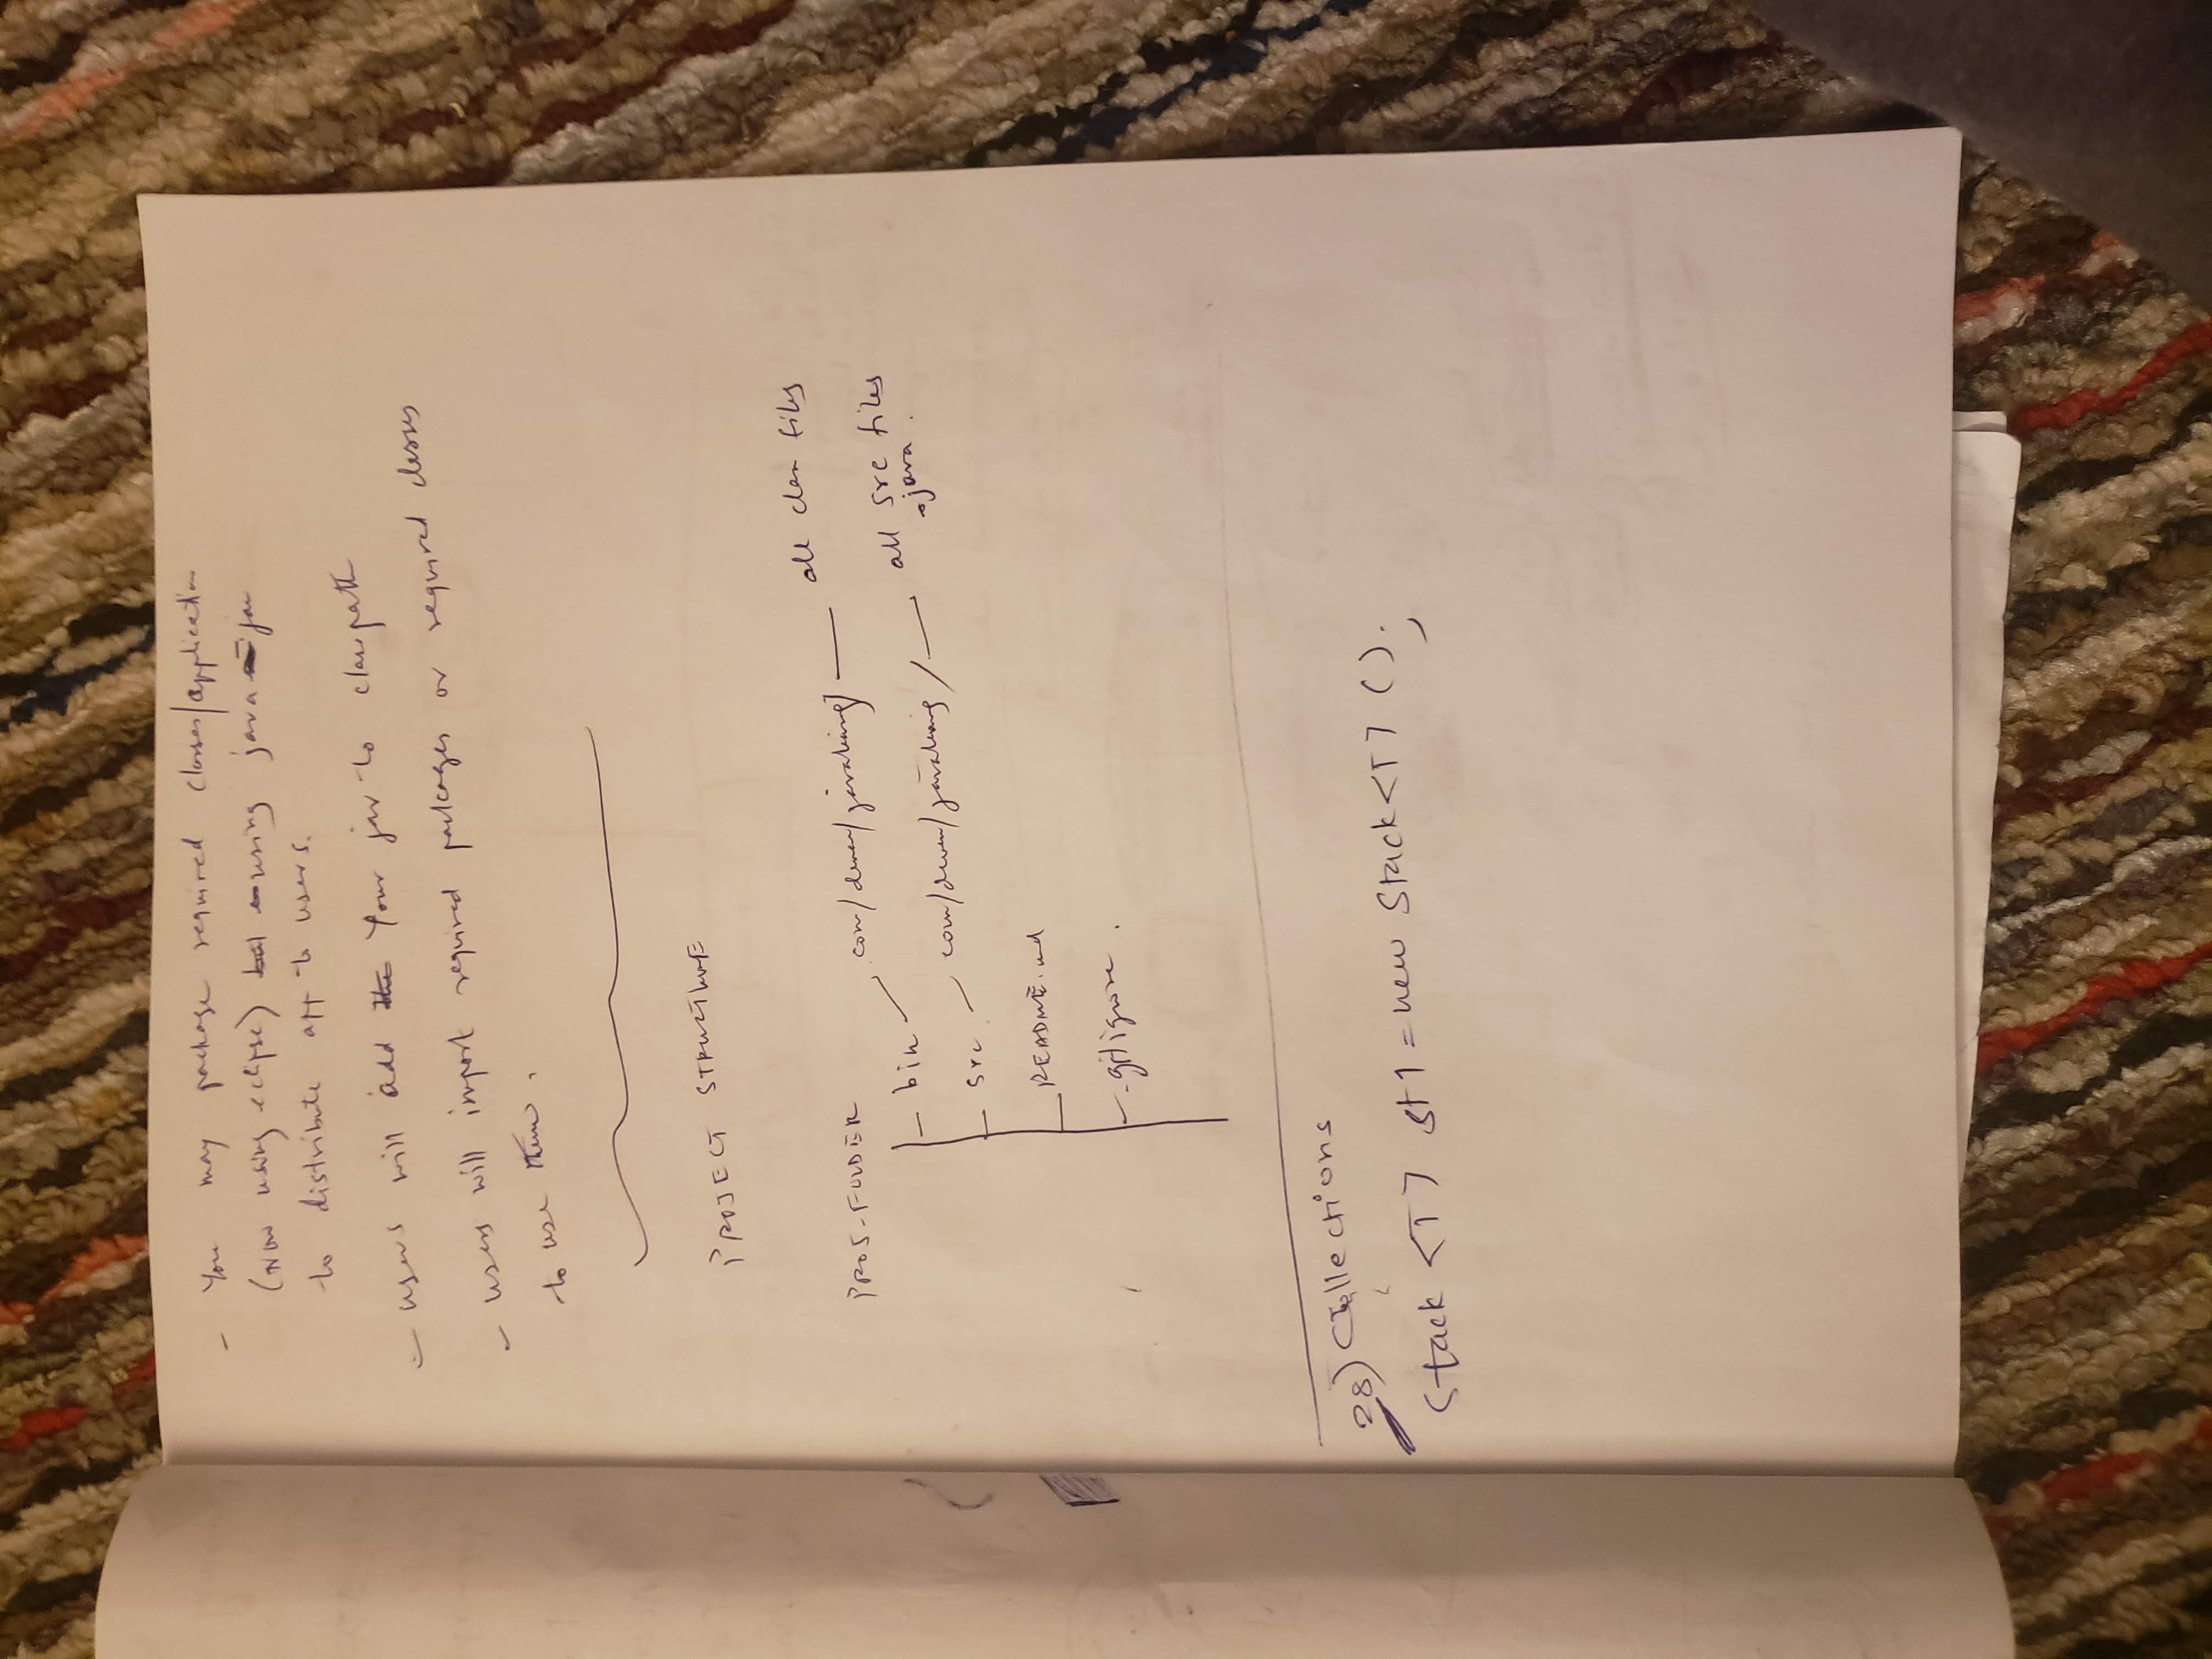 - You may package required classes/application
(now using eclipse) using java jar
to distribute app to users.
- users will add your jar to classpath
- users will import required packages or required classes
to use them.
PROJECT STRUCTURE
PROJ-FOLDER
bin com/ / all class files
src com/ / all src files
.java
README.md
.gitignore
28) Collections
Stack <T> st1 = new Stack<T> ();